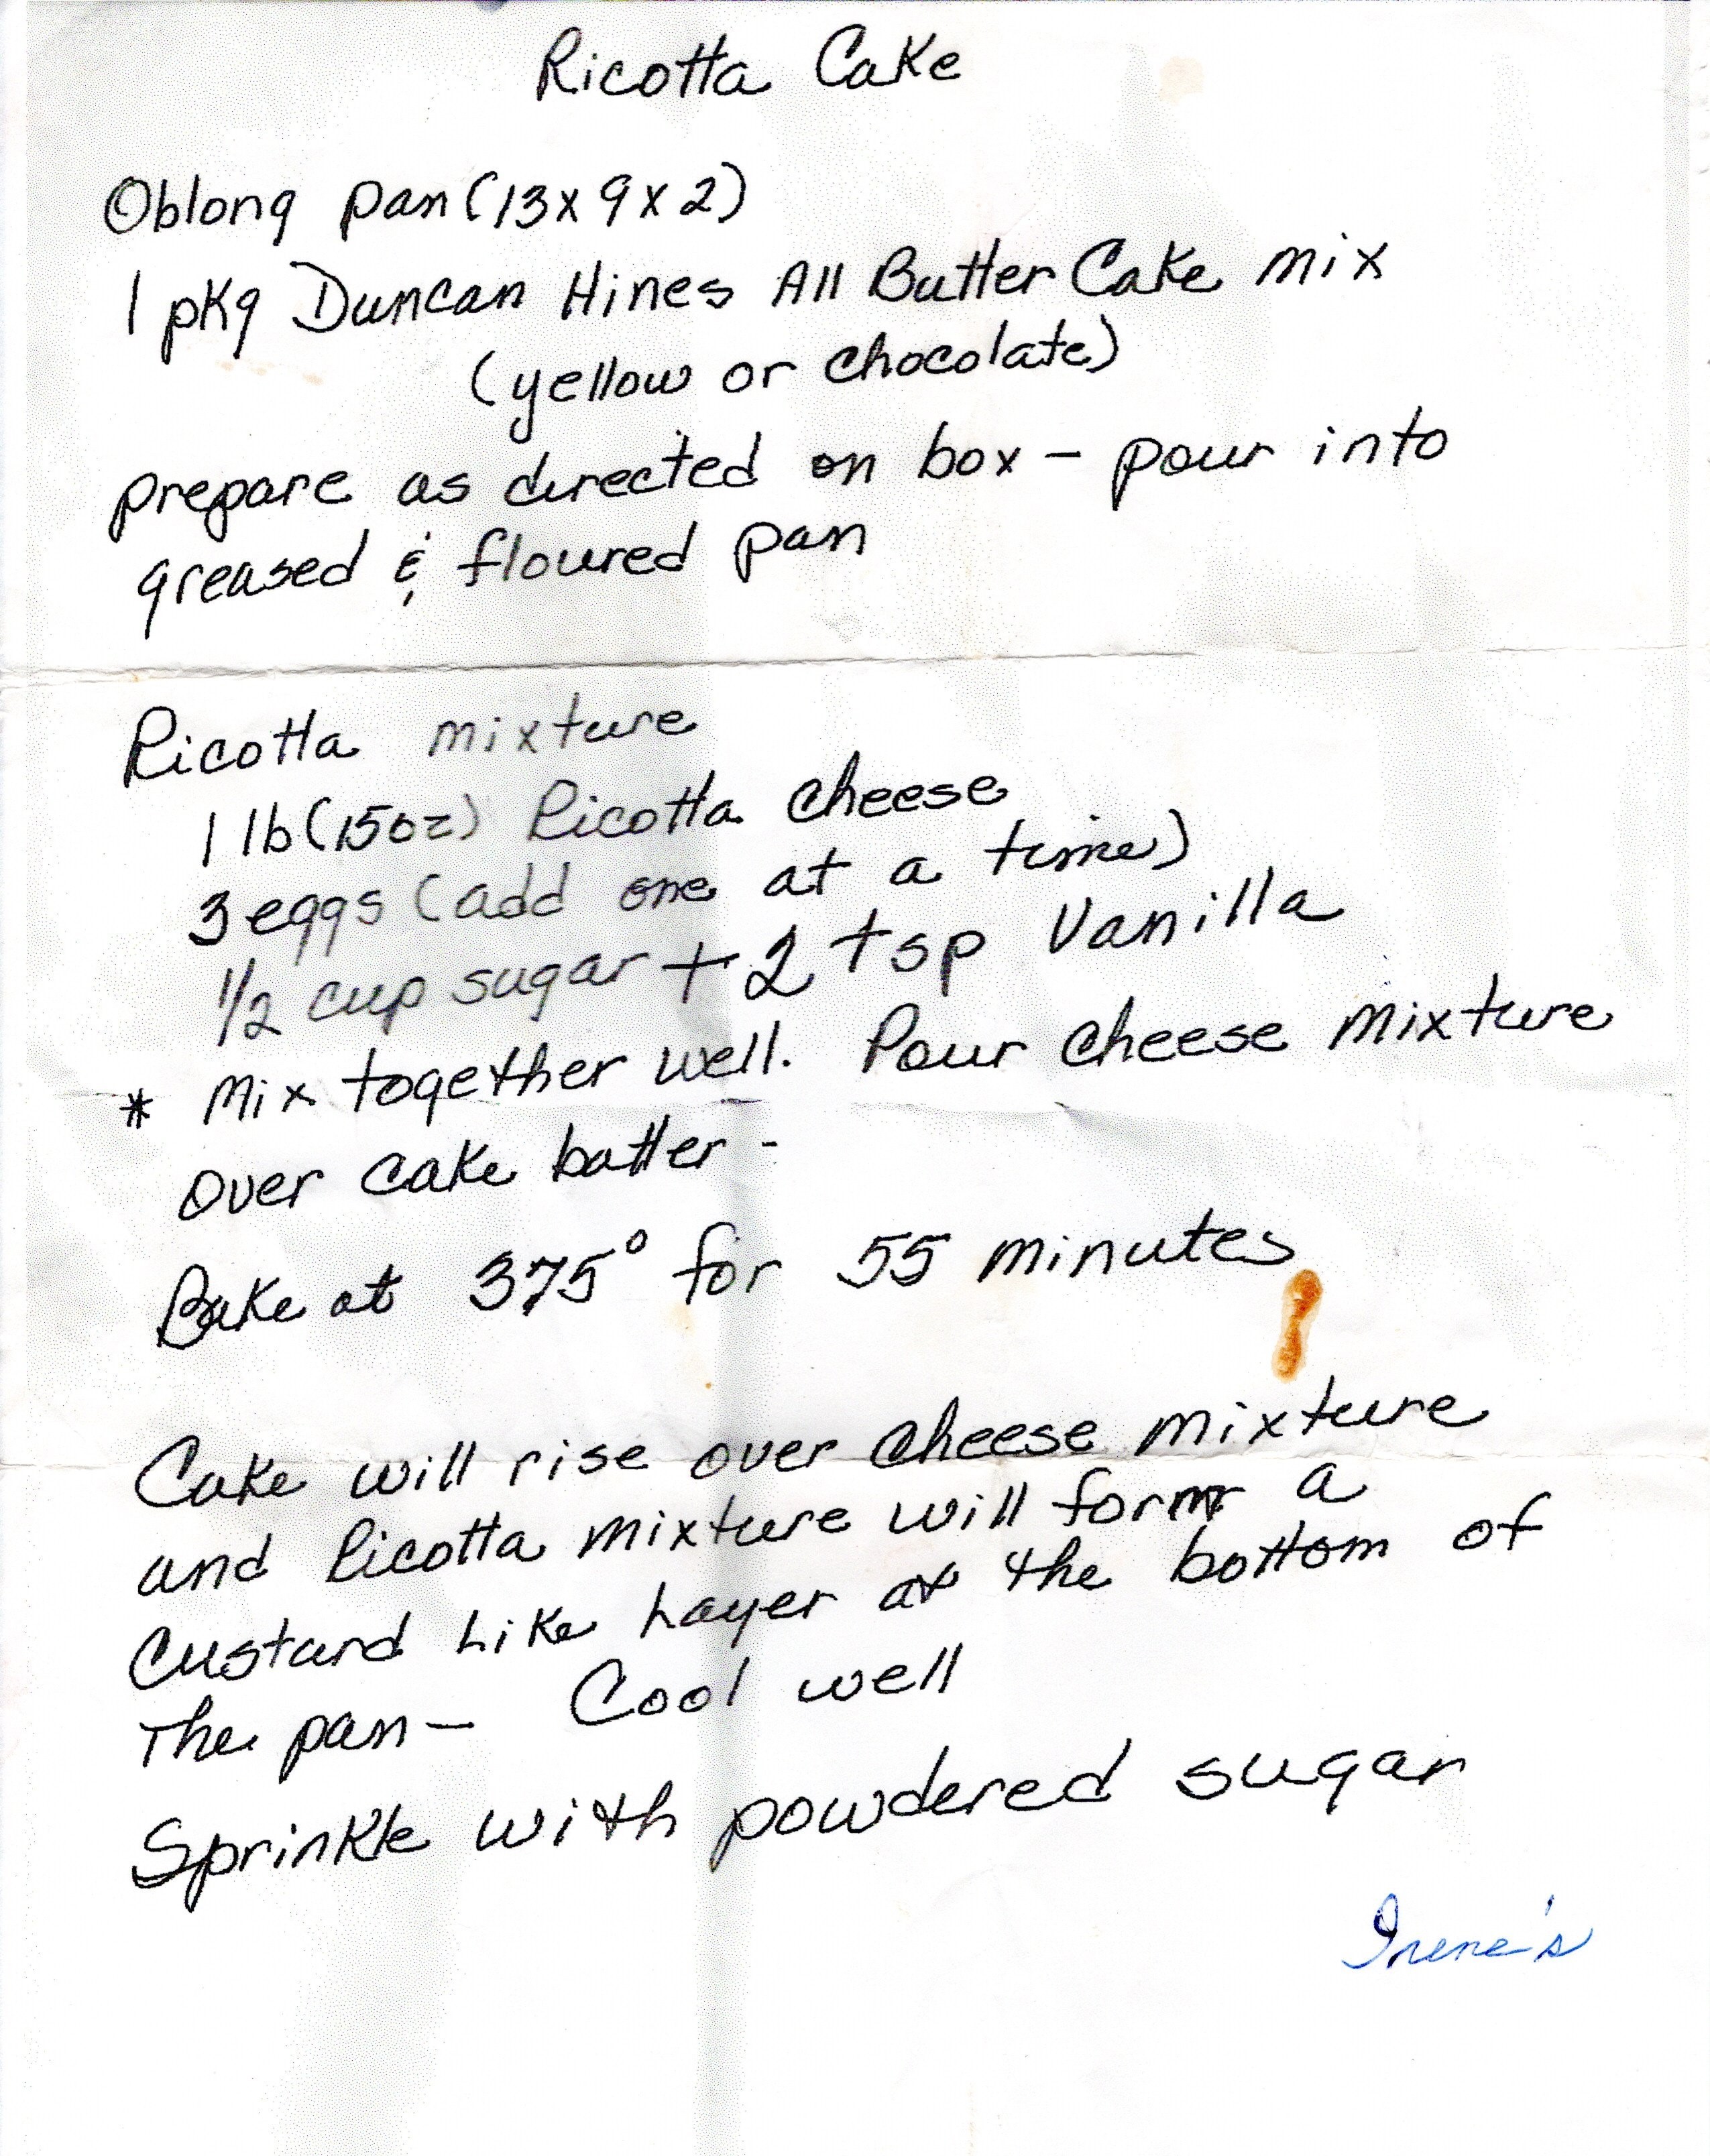 Ricotta Cake
Oblong pan (13 x 9 x 2)
1 pkg Duncan Hines All Butter Cake mix
(yellow or chocolate)
prepare as directed on box - pour into
greased & floured pan
Ricotta mixture
1 lb (15oz) Ricotta cheese
3 eggs (add one at a time)
1/2 cup sugar + 2 tsp Vanilla
* Mix together well. Pour cheese mixture
over cake batter -
Bake at 375° for 55 minutes
Cake will rise over cheese mixture
and Ricotta mixture will form a
Custard Like Layer at the bottom of
The pan - Cool well
Sprinkle with powdered sugar
Irene's